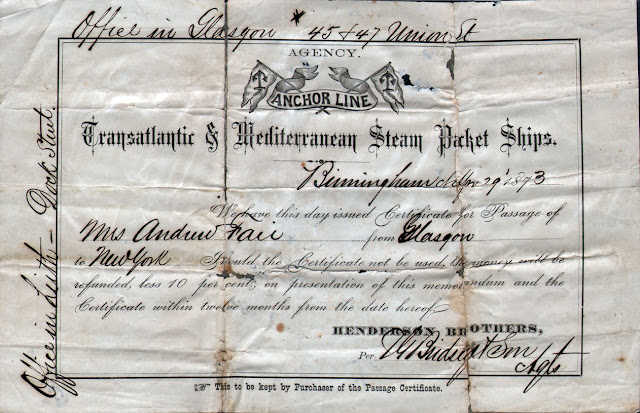 Office in Glasgow 45 & 47 Union St
AGENCY.
ANCHOR LINE
Transatlantic & Mediterranean Steam Packet Ships.
Birmingham 29' 1873
We have this day issued Certificate for Passage of
Mrs Andrew Fair from Glasgow
to New York Should the Certificate not be used, the money will be
refunded, less 10 per cent., on presentation of this memorandum and the
Certificate within twelve months from the date hereof.
HENDERSON BROTHERS,
Per Son
Agts
☞ This to be kept by Purchaser of the Passage Certificate.
Office in Leith - Dock Street.